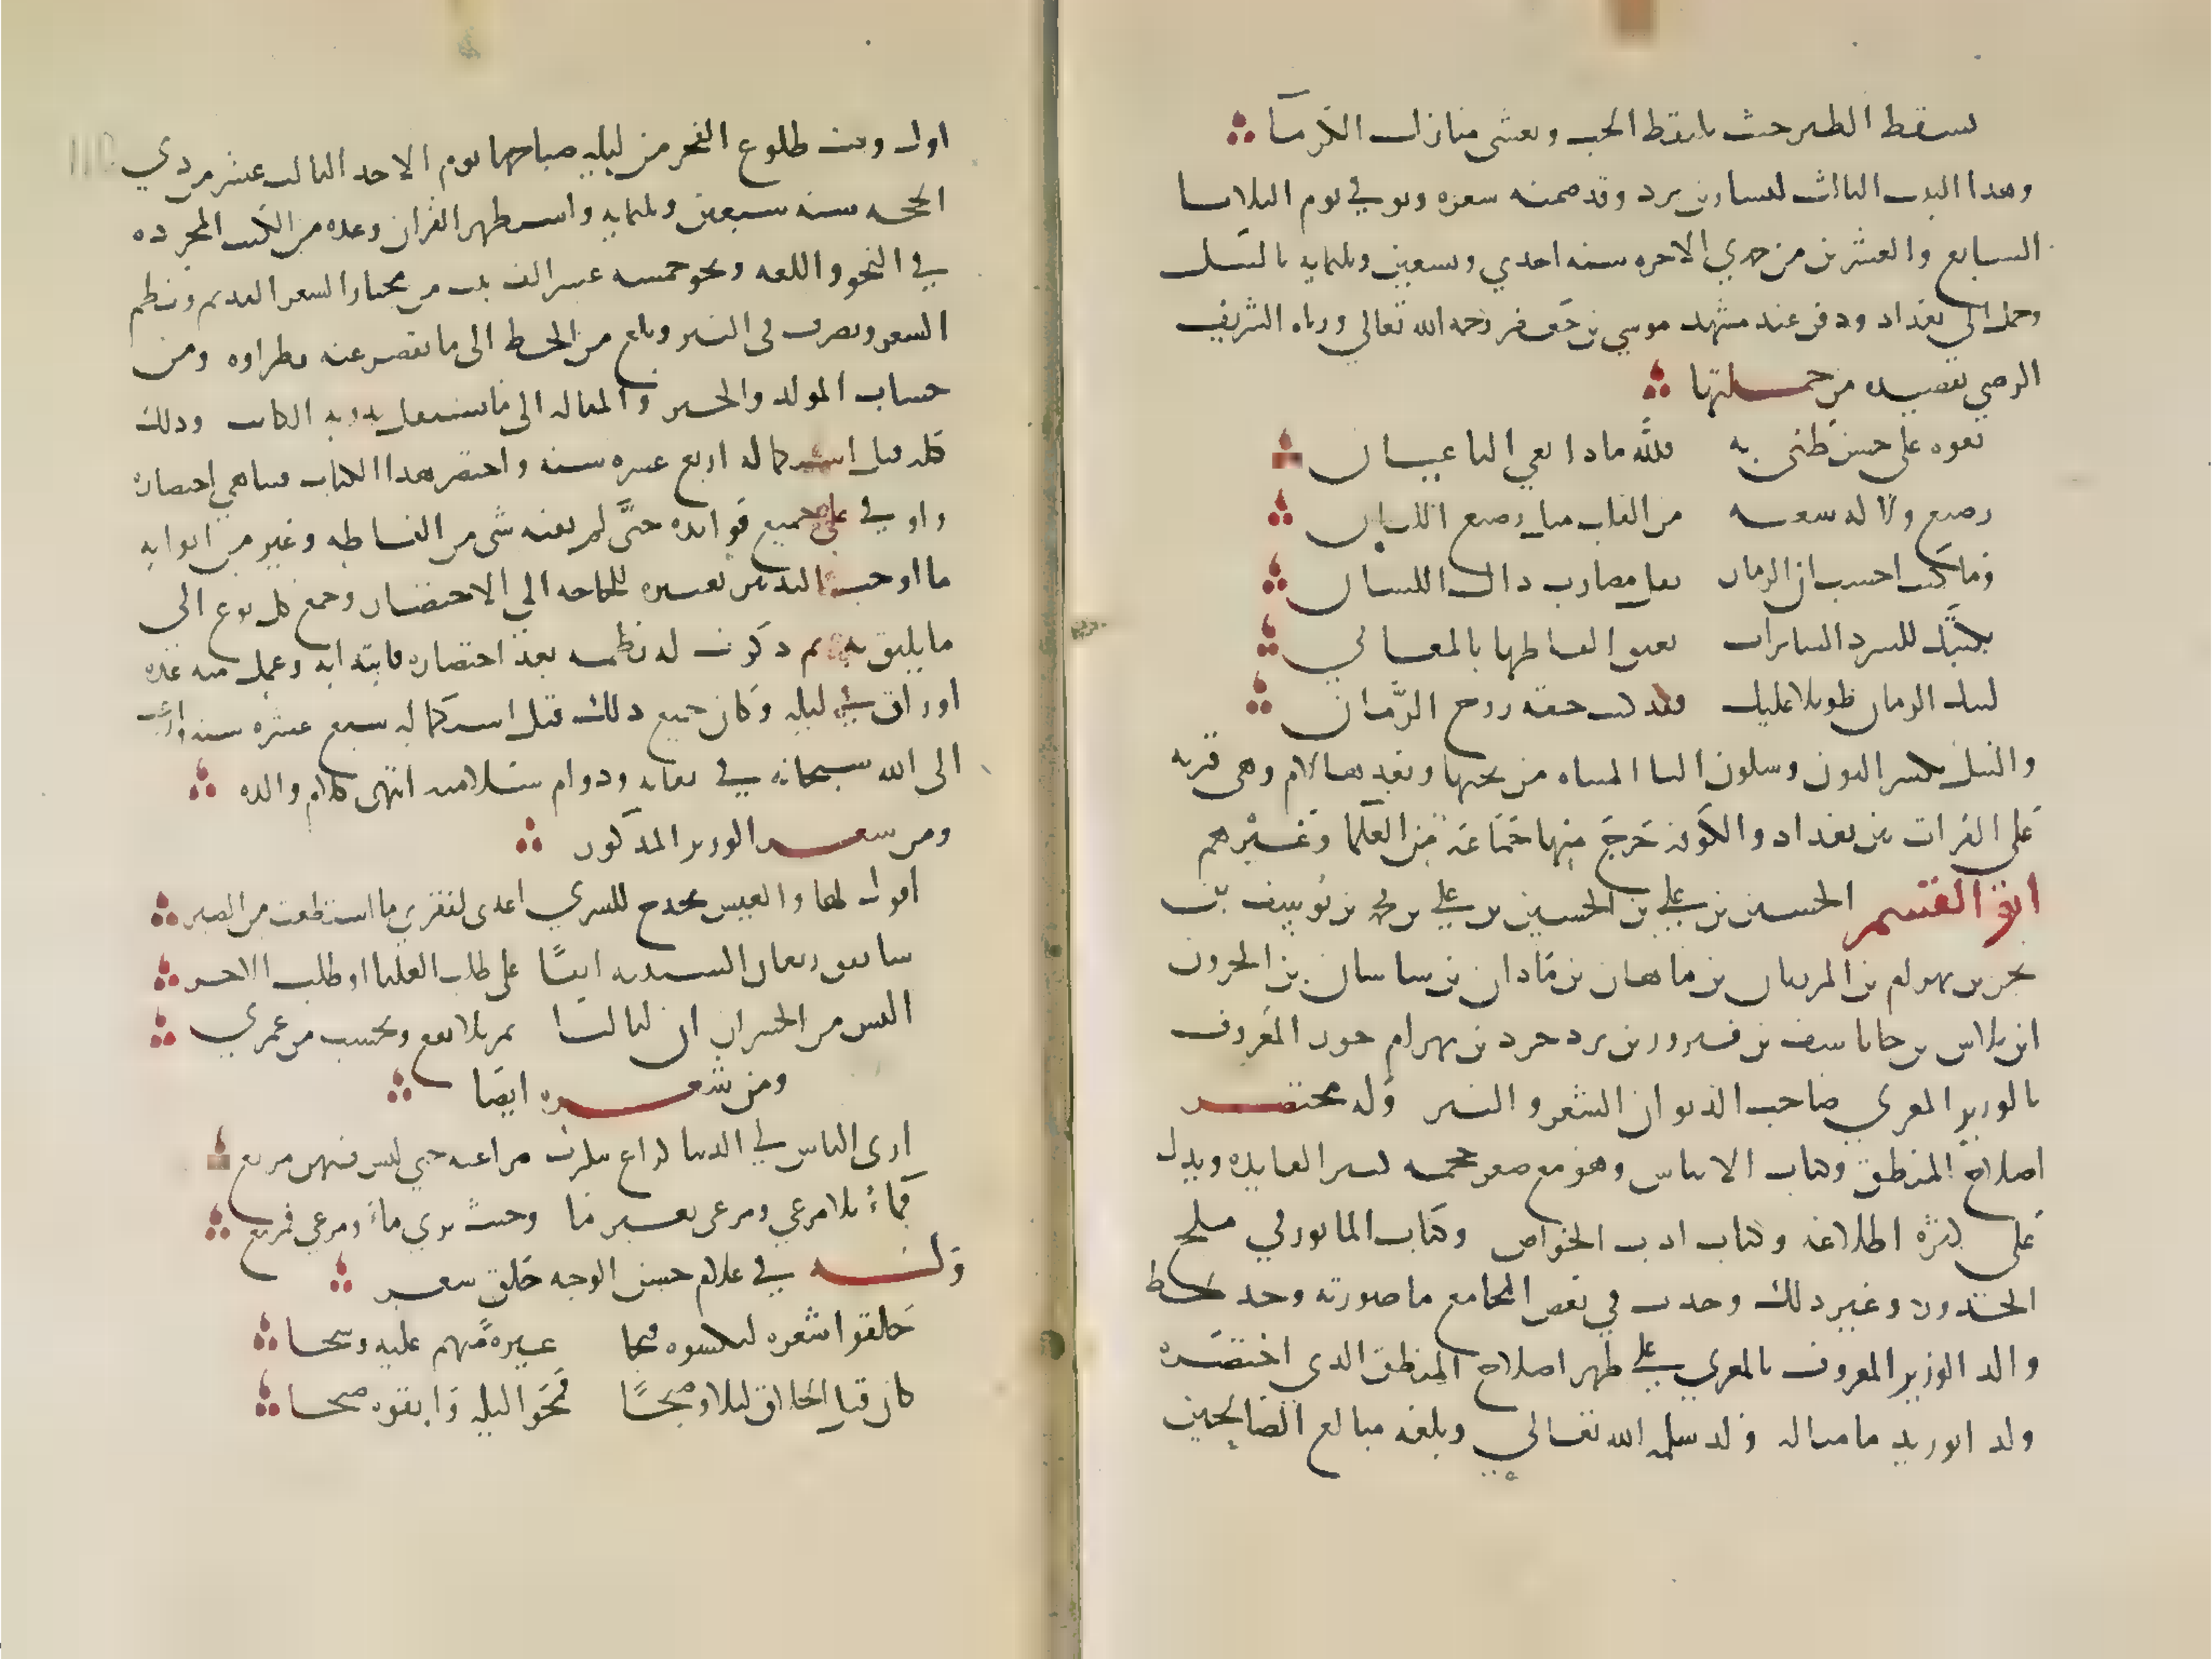 يسقط الطير حيث يلتقط الحب وتغشى منازل الكرما
وهذا البيت الثالث لبشار بن برد وقد ضمنه شعره وتوفي يوم الثلاثا
السابع والعشرين من جمدي الاخره سنه احدي وتسعين وثلثمايه بالنيل
وحمل الى بغداد ودفن عند مشهد موسي بن جعفر رحمه الله تعالي ورثاه الشريف
الرضي بقصيده من جملتها
نعوه على حسن ظني به فلله ماذا نعي الناعيان
رضيع ولا له شعبه من القلب مثل رضيع اللبان
وما كنت احسب ان الزمان يفل مضارب ذاك اللسان
بكيتك للشرد السائرات تعبق الفاظها بالمعاني
ليبك الزمان طويلا عليك فقد كنت خفه روح الزمان
والنيل بكسر النون وسكون اليا المثناه من تحتها وبعدها لام وهي قريه
على الفرات بين بغداد والكوفه خرج منها جماعة من العلما وغيرهم
ابو القسم الحسين بن علي بن الحسين بن علي بن محمد بن يوسف بن
بحر بن بهرام بن المرزبان بن ماهان بن باذان بن ساسان بن الحرون
ابن بلاش بن جاماسف بن فيروز بن يزدجرد بن بهرام جور المعروف
بالوزير المغربي صاحب الديوان الشعر والنثر وله مختصر
اصلاح المنطق وكتاب الايناس وهو مع صغر حجمه كثير الفايده ويدل
على كثره اطلاعه وكتاب ادب الخواص وكتاب الماثور في ملح
الخدور وغير ذلك وجدت في بعض المجاميع ما صورته وجد بخط
والد الوزير المعروف بالمغربي على ظهر اصلاح المنطق الذي اختصره
ولده الوزير ما مثاله ولد سلمه الله تعالي وبلغه مبالغ الصالحين
اول وقت طلوع الفجر من ليله صباحها يوم الاحد الثالث عشر من ذي
الحجه سنه سبعين وثلثمايه واستظهر القران وعده من الكتب المجرده
في النحو واللغه ونحو خمسه عشر الف بيت من مختار الشعر القديم ونظم
الشعر وتصرف في النثر وبلغ من الخط الى ما يقصر عنه نظراوه ومن
حساب المولد والجبر والمقابله الى ما يستقل بدونه الكاتب وذلك
كله قبل استكماله اربع عشره سنه واختصر هذا الكتاب فتناهي في اختصاره
واوفي على جميع فوائده حتى لم يفته شي من الفاظه وغير من ابوابه
ما اوجب التدبير تغييره للحاجه الي الاختصار وجمع كل نوع الى
ما يليق به ثم ذكرت له نظمه بعد اختصاره فابتدا به وعمل منه عده
اوراق في ليله وكان جميع ذلك قبل استكماله سبع عشره سنه وارغب
الى الله سبحانه في بقايه ودوام سلامته انتهى كلام والده
ومن شعر الوزير المذكور
اقول لها والعيس تحدج للسري اعدي لفقدي ما استطعت من الصبر
سانفق ريعان الشبيبه ايسا على طلب العليا او طلب الاجر
اليس من الخسران ان لياليا تمر بلا نفع وتحسب من عمري
ومن شعره ايضا
ارى الناس في الدنيا كراع تنكرت مراعيه حتي ليس فيهن مرتع
فماء بلا مرعي ومرعى بغير ما وحيث يري ماء ومرعي فمسبع
وله في غلام حسن الوجه حلق شعره
حلقوا شعره ليكسوه قبحا غيره منهم عليه وشحا
كان قبل الحلاق ليلا وصبحا فمحوا ليله وابقوه صبحا